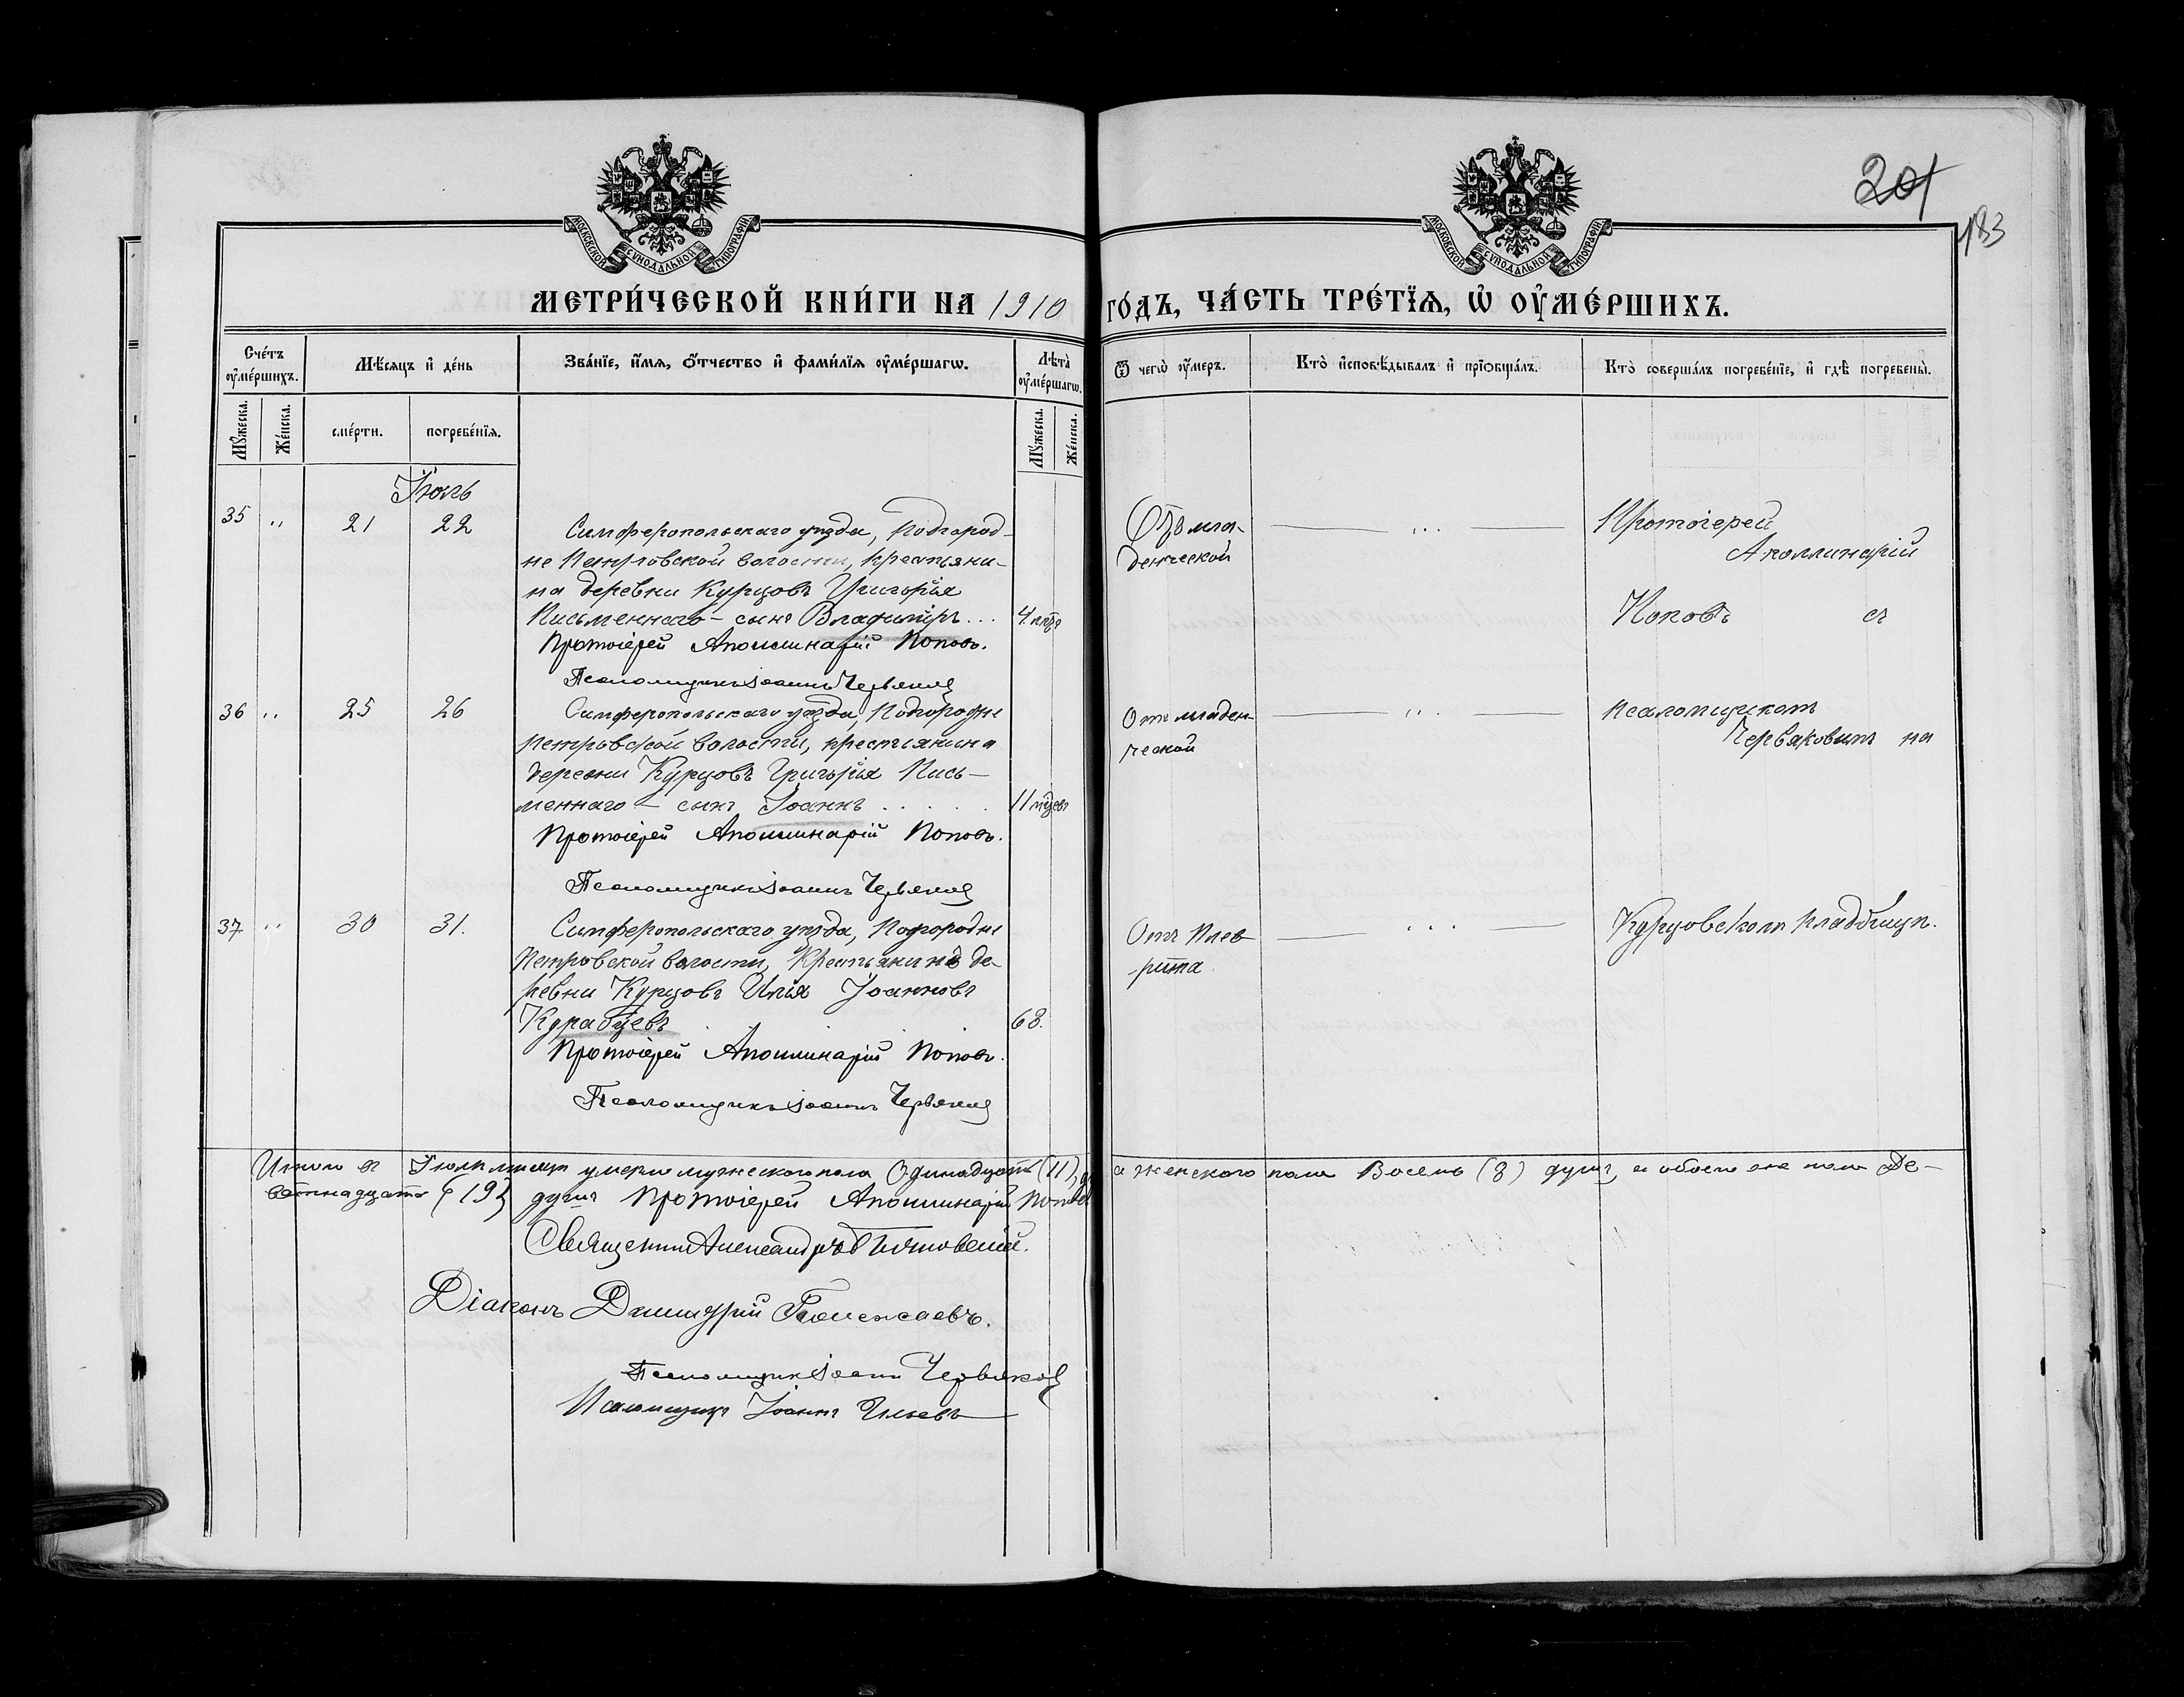 201
183
МОСКОВСКОЙ СѴНОДАЛЬНОЙ ТИПОГРАФІИ
МОСКОВСКОЙ СѴНОДАЛЬНОЙ ТИПОГРАФІИ
МЕТРИ́ЧЕСКОЙ КНИ́ГИ НА 1910 ГО́ДЪ, ЧА́СТЬ ТРЕ́ТЇѦ, Ѡ҆ ОУ҆МЕ́РШИХЪ.
Сче́тъ оу҆ме́ршихъ.
Мѣ́сяцъ и҆ де́нь
Зва́нїе, и҆́мя, ѻ҆́тчество и҆ фами́лїя оу҆ме́ршагѡ.
Лѣта̀ оу҆ме́ршагѡ.
Ѿ чегѡ̀ оу҆́меръ.
Кто̀ и҆сповѣ́дывалъ и҆ прїѡбща́лъ.
Кто̀ соверша́лъ погребе́нїе, и҆ гдѣ̀ погребены̀.
Мꙋ́жеска.
Же́нска.
сме́рти.
погребе́нїя.
Мꙋ́жеска.
Же́нска.
Іюль
35 " 21 22
Симферопольскаго уѣзда, Подгород-
не Петровской волости, крестьяни-
на деревни Курцовъ Григорія
Письменнаго - сынъ Владиміръ...
4 лѣтъ
Протоіерей Аполлинарій Поповъ.
Псаломщикъ Іоаннъ Червяковъ
Отъ мла-
денческой
Протоіерей
Аполлинарій
Поповъ съ
36 " 25 26
Симферопольскаго уѣзда, Подгородне
Петровской волости, крестьянина
деревни Курцовъ Григорія Пись-
меннаго - сынъ Іоаннъ . . . . .
11 мѣсяц
Протоіерей Аполлинарій Поповъ.
Псаломщикъ Іоаннъ Червяковъ
Отъ младен-
ческой
псаломщикомъ
Червяковымъ на
37 " 30 31.
Симферопольскаго уѣзда, Подгородне
Петровской волости, Крестьянинъ де-
ревни Курцовъ Илія Іоанновъ
Курабцевъ
68.
Протоіерей Аполлинарій Поповъ.
Псаломщикъ Іоаннъ Червяковъ
Отъ плев-
рита
Курцовскомъ кладбищѣ.
Итого въ Іюлѣ мѣсяцѣ умерло мужескаго пола Одинадцать (11), а женскаго пола Восемь (8) душъ, а обоего пола Де-
вятнадцать (19) душъ Протоіерей Аполлинарій Поповъ
Священникъ Александръ
Діаконъ Димитрій
Псаломщикъ Іоаннъ Червяковъ
Псаломщикъ Іоаннъ